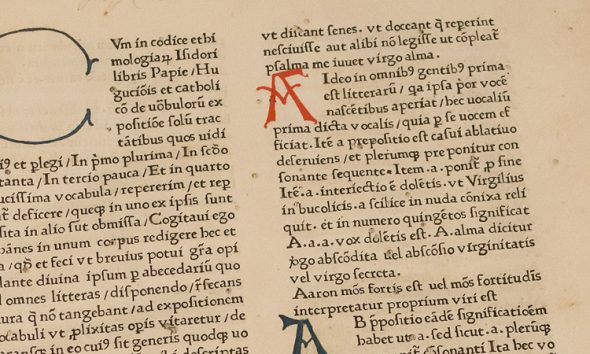 Vm in codice ethi
mologiaꝝ Isidori
libris Papie/Hu
guciõis et catholi
cõ de uõbulorũ ex
positiõe solũ trac
tãtibus quos uidi
et plegi/In pᷓmo plurima/In scõo
tanta/In tercio pauca/Et in quarto
ucissima vocabula/repererim/et rep
deficere/queqꝫ in uno ex ipsis sunt
sita in alio sut obmissa/Cogitaui ego
in unum corpus redigere hec et
et feci vt breuius potui gr̃a opi
dante diuina ipsum ꝑ abecedariũ quo
d omnes litteras/disponendo/
tura q̃ nõ tangebant/ad expositionem
ocabuli vt ꝓlixitas opis vitaretur/de
in eo cuiꝰ sit generis quodqꝫ uo
descriptas
vt dicant senes. vt doceant q̃ reperint
nesciuisse aut alibi nõ legisse ut cõpleat̃
psalma me iuuet virgo alma.
A Ideo in omnibꝰ gentibꝰ prima
est litterarũ/qa ipsa ꝓor vocẽ
nascẽtibus aperiat/hec uocaliũ
prima dicta vocalis/quia ꝑ se uocem ef
ficiat. Itẽ a prepositio est casui ablatiuo
deseruiens/et plerumqꝫ preponitur con
sonante sequente. Item .a. ponit̃ ꝓ sine
Itẽ .a. interiectio ẽ doletis. vt Virgilius
in bucolicis .a scilice in nuda cõnixa reli
quit. et in numero quingẽtos significat
A.a.a. vox doletis est. A.alma dicitur
abscõdita uel abscõsio virginitatis
vel virgo secreta.
Aaron mõs fortis est uel mõs fortitudis
interpretatur proprium viri est
A B ꝑpositio eãdẽ significatioẽm
habet ut .a. sed sicut .a. plerũqꝫ
cõsonanti Ita bec vo